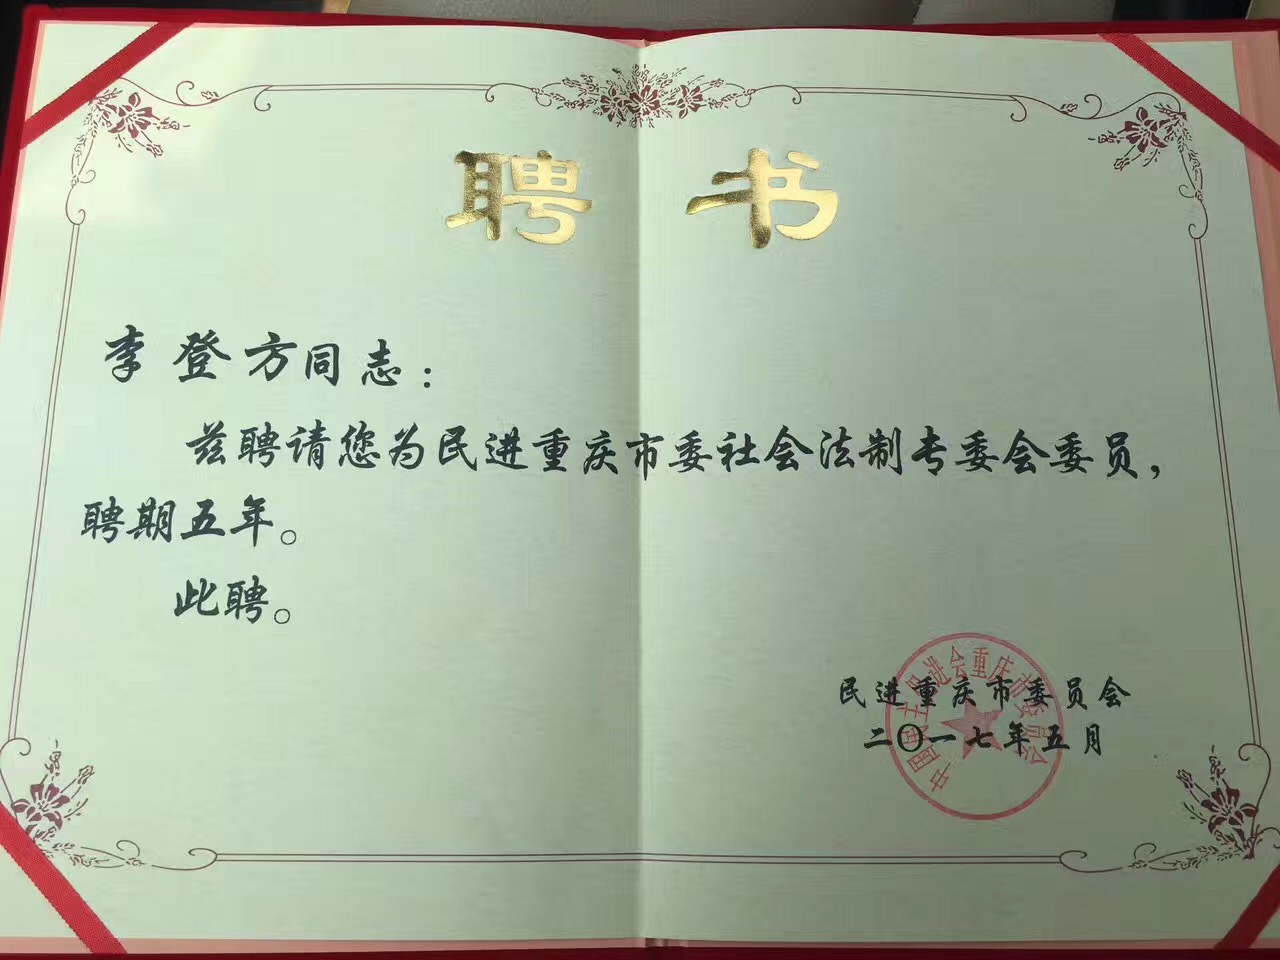 聘书
李登方同志：
兹聘请您为民进重庆市委社会法制专委会委员，
聘期五年。
此聘。
民进重庆市委员会
二〇一七年五月
中国民主促进会重庆市委员会